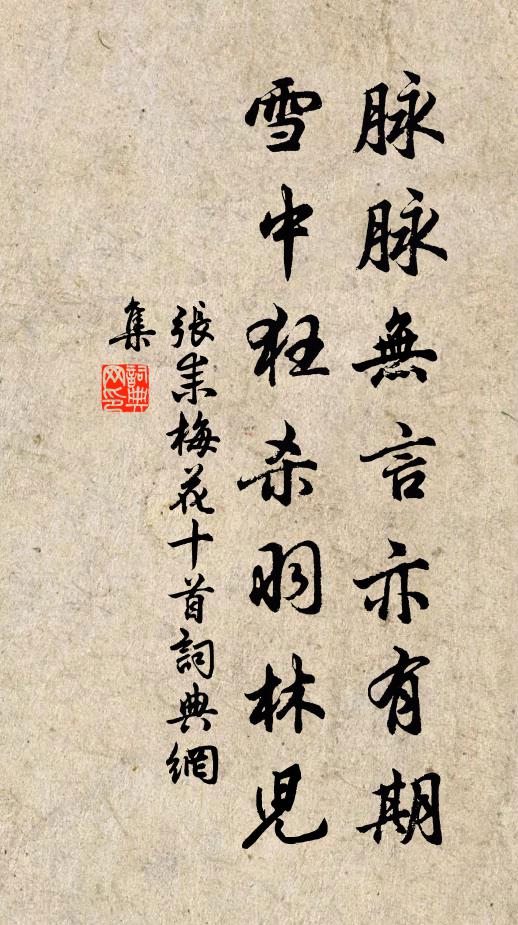 脉脉無言亦有期
雪中狂杀羽林児
張耒梅花十首詞典網
集
詞典
网印